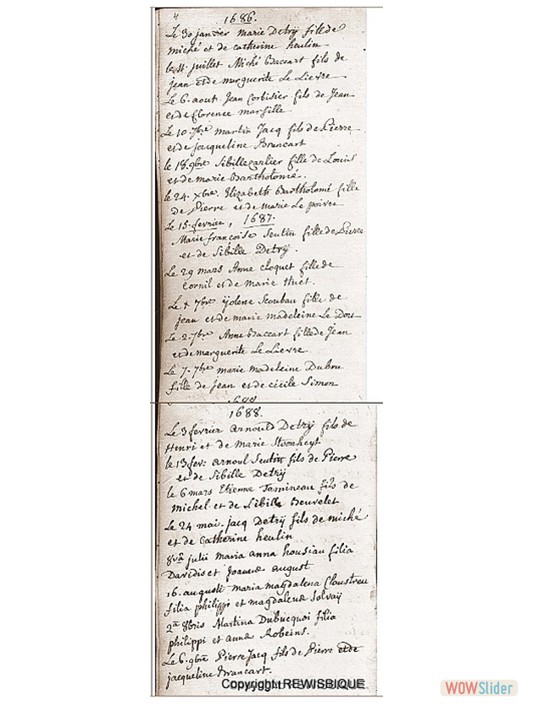 4
1686.
Le 30 janvier marie Detrÿ fille de
miché et de catherine heulin
le 11 juillet Miché Baccart fils de
jean et de marguerite Le Lievre
Le 6. aout Jean Corbisier fils de Jean
et de florence marsille
Le 10. 7bre martin Jacq fils de Pierre
et de jacqueline Brancart
le 18. 9bre Sibille cartier fille de Louis
et de marie Bartholomé.
le 24. xbre. Elizabeth Bartholomé fille
de Pierre et de marie Le poivre
Le 15. fevrier, 1687.
Marie françoise Seutin fille de Pierre
et de Sibille Detrÿ.
Le 29 mars Anne Cloquet fille de
Cornil et de marie huet.
Le 7bre ÿolene Scoubau fille de
jean et de marie madeleine Le Docq
Le 2. 7bre Anne Baccart fille de Jean
et de marguerite Le Lievre
Le 7. 7bre marie madeleine Dubru
fille de jean et de cécile Simon
1688.
Le 3 fevrier arnould Detrÿ fils de
Henri et de Marie
le 13 fev: arnoul Seutin fils de Pierre
et de Sibille Detrÿ
le 6 mars Etienne Tamineau fils de
michel et de Sibille Beuvelet
Le 24 mai. jacq Detrÿ fils de miché
et de Catherine heulin
8va julii maria anna housiau filia
Davidis et Joannæ august
16. augusti maria magdalena Claustreu
filia philippi et magdalenæ Solvaÿ
2a 8bris Martina Dubucquoi filia
philippi et annæ Robeins.
Le 6. 9bre Pierre Jacq fils de Pierre et de
jacqueline Brancart.
Copyright REWISBIQUE
WOWSlider